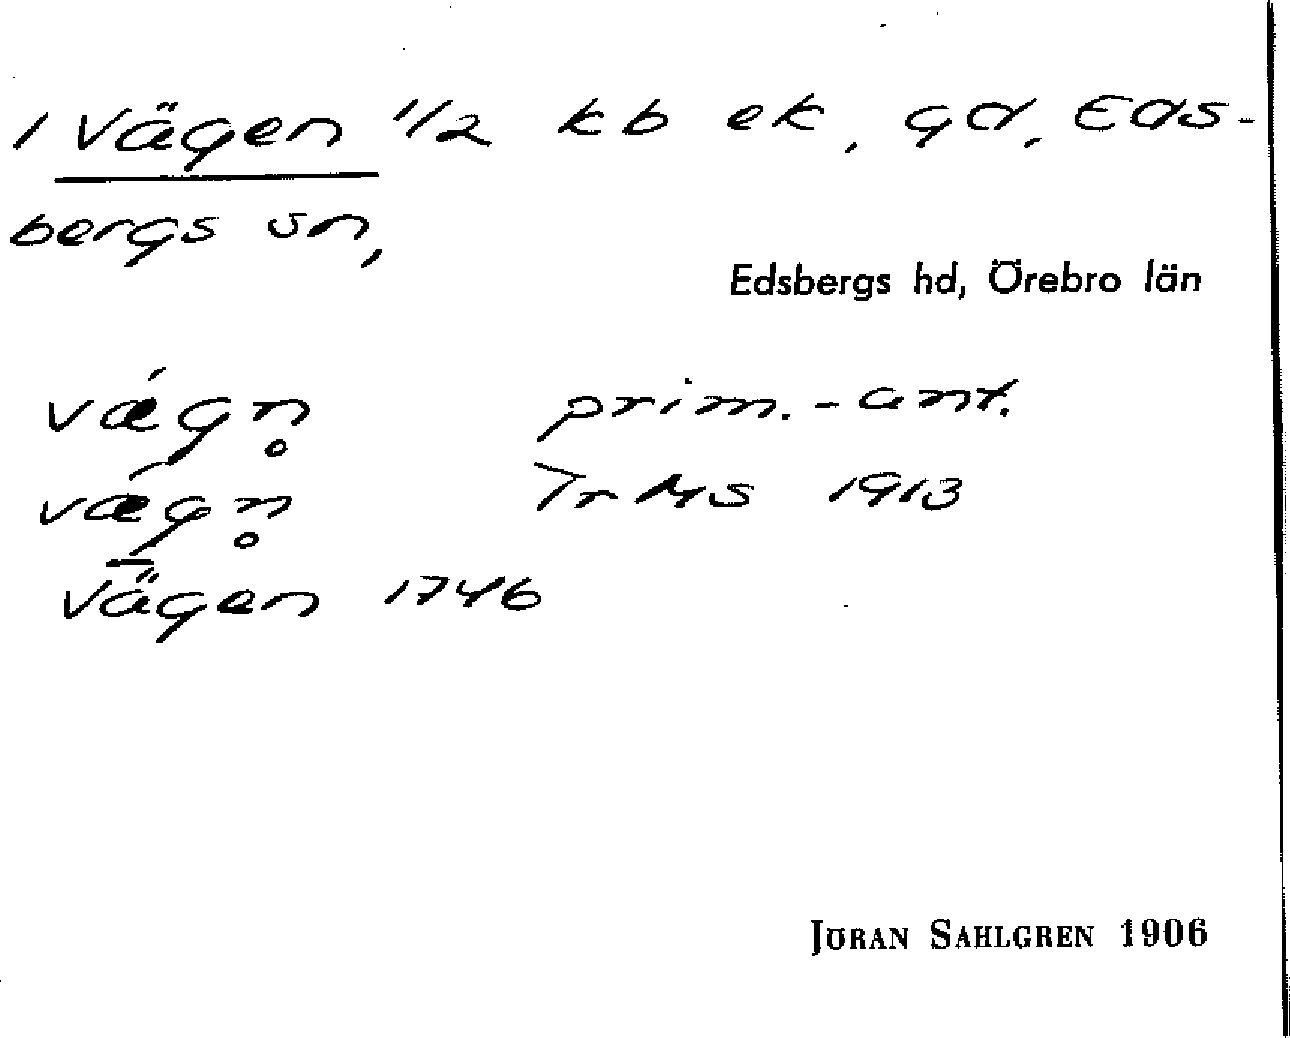 1 Vägen 1/2 kb ek, gd, Eds-
bergs sn,
Edsbergs hd, Örebro län
vǽgn̥ prim.-ant.
vǽgn̥ Tr MS 1913
Vägen 1746
JÖRAN SAHLGREN 1906